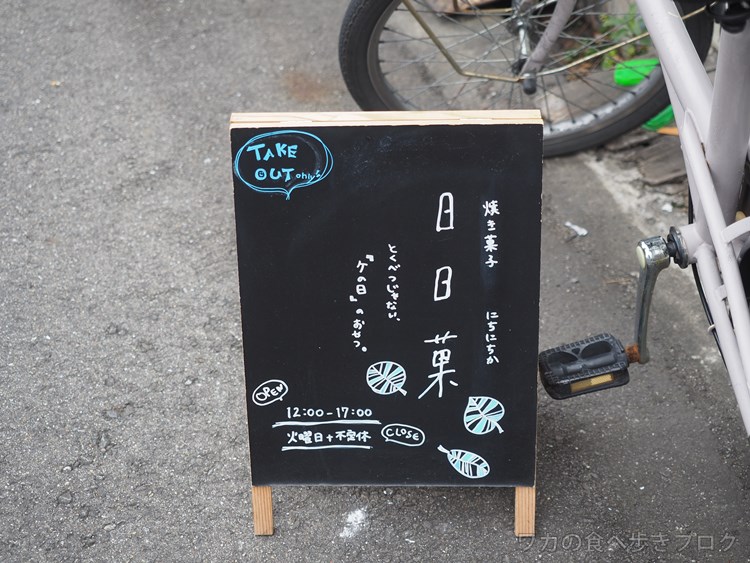 TAKE
OUT only
焼き菓子 にちにちか
日日菓
とくべつじゃない、
『ケの日』のおやつ。
OPEN
12:00-17:00
火曜日+不定休
CLOSE
ワカの食べ歩きブログ